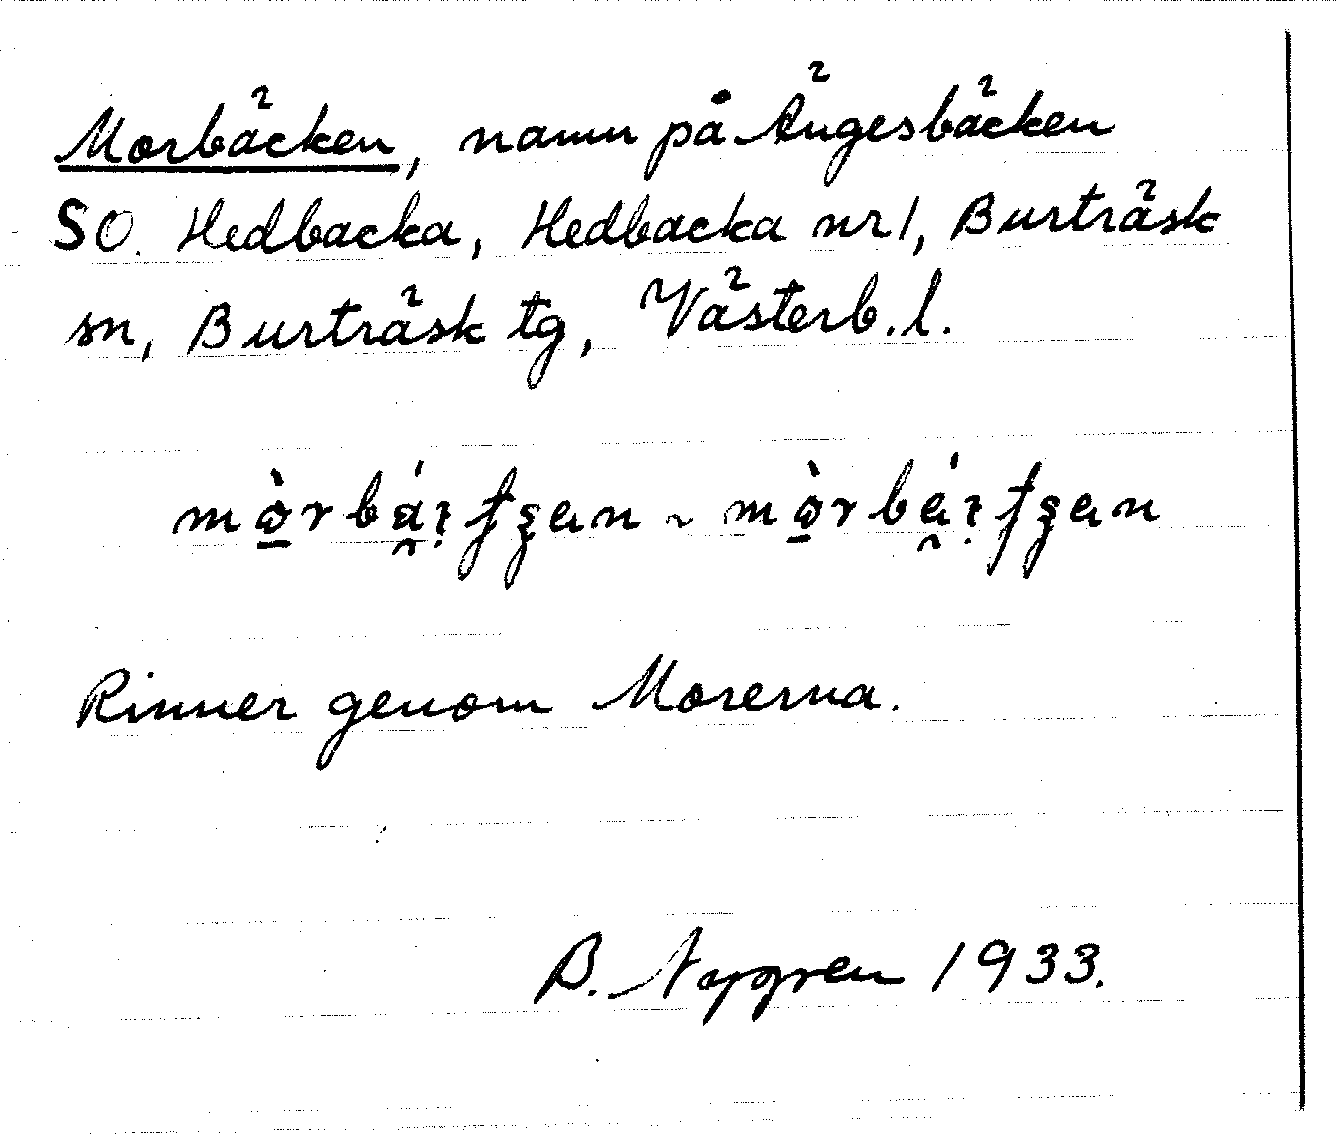 Morbäcken, namn på Ängesbäcken
SO. Hedbacka, Hedbacka nr 1, Burträsk
sn, Burträsk tg, Västerb. l.
Rinner genom Morerna.
B. Nygren 1933.